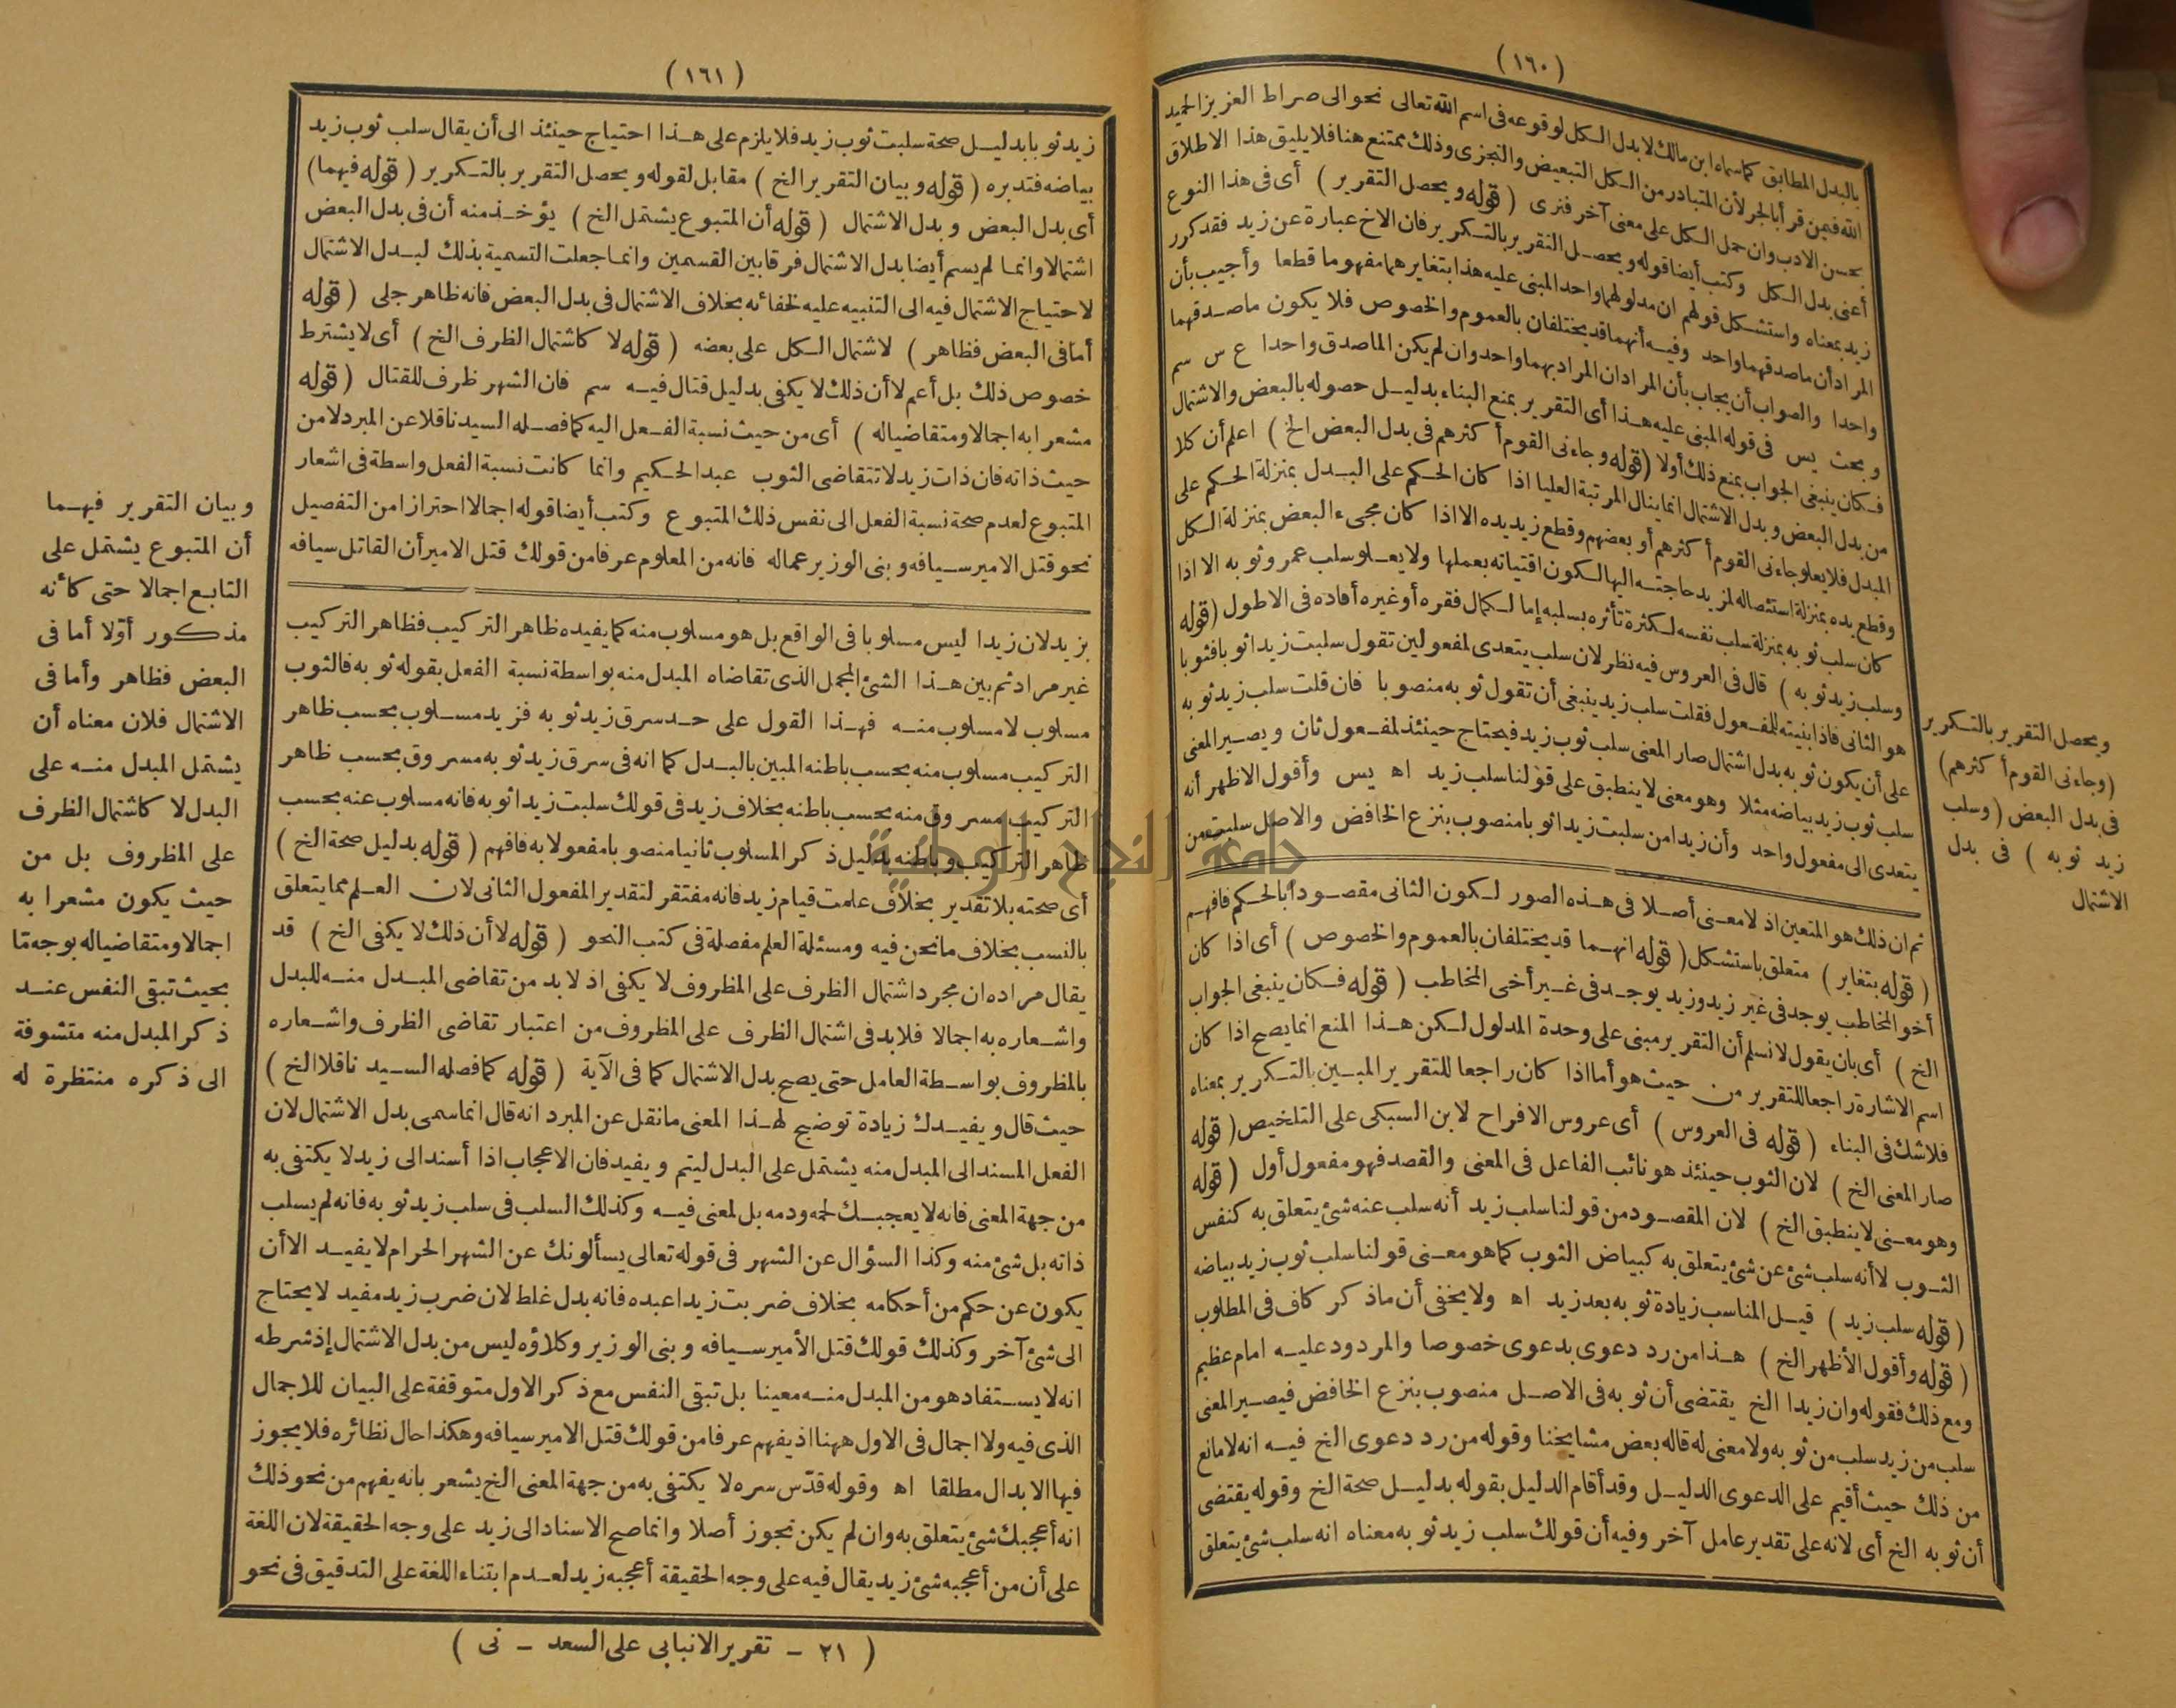 (١٦٠)
بالبدل المطابق كما سماه ابن مالك لا بدل الكل لوقوعه فى اسم الله تعالى نحو الى صراط العزيز الحميد
الله فيمن قرأ بالجر لأن المتبادر من الكل التبعيض والتجزى وذلك ممتنع هنا فلا يليق هذا الاطلاق
بحسن الادب وان حمل الكل على معنى آخر فنرى (قوله ويحصل التقرير) أى فى هذا النوع
أعنى بدل الكل وكتب أيضا قوله ويحصل التقرير بالتكرير فان الاخ عبارة عن زيد فقد كرر
زيد بمعناه واستشكل قولهم ان مدلولهما واحد المبنى عليه هذا بتغايرهما مفهوما قطعا وأجيب بأن
المراد أن ما صدقهما واحد وفيه أنهما قد يختلفان بالعموم والخصوص فلا يكون ما صدقهما
واحدا والصواب أن يجاب بأن المراد ان المراد بهما واحد وان لم يكن الماصدق واحدا ع س سم
وبحث يس فى قوله المبنى عليه هذا أى التقرير بمنع البناء بدليل حصوله بالبعض والاشتمال
فكان ينبغى الجواب بمنع ذلك أولا (قوله وجاءنى القوم أكثرهم فى بدل البعض الخ) اعلم أن كلا
من بدل البعض وبدل الاشتمال انما ينال المرتبة العليا اذا كان الحكم على البدل بمنزلة الحكم على
المبدل فلا يعلو جاءنى القوم أكثرهم أو بعضهم وقطع زيد يده الا اذا كان مجىء البعض بمنزلة الكل
وقطع يده بمنزلة استئصاله لمزيد حاجته اليها لكون اقتياته بعملها ولا يعلو سلب عمرو ثوبه الا اذا
كان سلب ثوبه بمنزلة سلب نفسه لكثرة تأثره بسلبه إما لكمال فقره أو غيره أفاده فى الاطول (قوله
وسلب زيد ثوبه) قال فى العروس فيه نظر لان سلب يتعدى لمفعولين تقول سلبت زيدا ثوبا فثوبا
هو الثانى فاذا بنيته للمفعول فقلت سلب زيد ينبغى أن تقول ثوبه منصوبا فان قلت سلب زيد ثوبه
على أن يكون ثوبه بدل اشتمال صار المعنى سلب ثوب زيد فيحتاج حينئذ لمفعول ثان ويصير المعنى
سلب ثوب زيد بياضه مثلا وهو معنى لا ينطبق على قولنا سلب زيد اه يس وأقول الاظهر أنه
يتعدى الى مفعول واحد وأن زيدا من سلبت زيدا ثوبا منصوب بنزع الخافض والاصل سلبت من
ثم ان ذلك هو المتعين اذ لا معنى أصلا فى هذه الصور لكون الثانى مقصودا بالحكم فافهم
(قوله بتغاير) متعلق باستشكل (قوله انهما قد يختلفان بالعموم والخصوص) أى اذا كان
أخو المخاطب يوجد فى غير زيد وزيد يوجد فى غير أخى المخاطب (قوله فكان ينبغى الجواب
الخ) أى بان يقول لا نسلم أن التقرير مبنى على وحدة المدلول لكن هذا المنع انما يصح اذا كان
اسم الاشارة راجعا للتقرير من حيث هو أما اذا كان راجعا للتقرير المبين بالتكرير بمعناه
فلا شك فى البناء (قوله فى العروس) أى عروس الافراح لابن السبكى على التلخيص (قوله
صار المعنى الخ) لان الثوب حينئذ هو نائب الفاعل فى المعنى والقصد فهو مفعول أول (قوله
وهو معنى لا ينطبق الخ) لان المقصود من قولنا سلب زيد أنه سلب عنه شئ يتعلق به كنفس
الثوب لا أنه سلب شئ عن شئ يتعلق به كبياض الثوب كما هو معنى قولنا سلب ثوب زيد بياضه
(قوله سلب زيد) قيل المناسب زيادة ثوبه بعد زيد اه ولا يخفى أن ما ذكر كاف فى المطلوب
(قوله وأقول الأظهر الخ) هذا من رد دعوى بدعوى خصوصا والمردود عليه امام عظيم
ومع ذلك فقوله وان زيدا الخ يقتضى أن ثوبه فى الاصل منصوب بنزع الخافض فيصير المعنى
سلب من زيد سلب من ثوبه ولا معنى له قاله بعض مشايخنا وقوله من رد دعوى الخ فيه انه لا مانع
من ذلك حيث أقيم على الدعوى الدليل وقد أقام الدليل بقوله بدليل صحة الخ وقوله يقتضى
أن ثوبه الخ أى لانه على تقدير عامل آخر وفيه أن قولك سلب زيد ثوبه معناه انه سلب شئ يتعلق
ويحصل التقرير بالتكرير
(وجاءنى القوم أكثرهم)
فى بدل البعض (وسلب
زيد ثوبه) فى بدل
الاشتمال
(١٦١)
زيد ثوبا بدليل صحة سلبت ثوب زيد فلا يلزم على هذا احتياج حينئذ الى أن يقال سلب ثوب زيد
بياضه فتدبره (قوله وبيان التقرير الخ) مقابل لقوله ويحصل التقرير بالتكرير (قوله فيهما)
أى بدل البعض وبدل الاشتمال (قوله أن المتبوع يشتمل الخ) يؤخذ منه أن فى بدل البعض
اشتمالا وانما لم يسم أيضا بدل الاشتمال فرقا بين القسمين وانما جعلت التسمية بذلك لبدل الاشتمال
لاحتياج الاشتمال فيه الى التنبيه عليه لخفائه بخلاف الاشتمال فى بدل البعض فانه ظاهر جلى (قوله
أما فى البعض فظاهر) لاشتمال الكل على بعضه (قوله لا كاشتمال الظرف الخ) أى لا يشترط
خصوص ذلك بل أعم لا أن ذلك لا يكفى بدليل قتال فيه سم فان الشهر ظرف للقتال (قوله
مشعرا به اجمالا ومتقاضيا له) أى من حيث نسبة الفعل اليه كما فصله السيد ناقلا عن المبرد لا من
حيث ذاته فان ذات زيد لا تتقاضى الثوب عبد الحكيم وانما كانت نسبة الفعل واسطة فى اشعار
المتبوع لعدم صحة نسبة الفعل الى نفس ذلك المتبوع وكتب أيضا قوله اجمالا احترازا من التفصيل
نحو قتل الامير سيافه وبنى الوزير عماله فانه من المعلوم عرفا من قولك قتل الامير أن القاتل سيافه
بزيد لان زيدا ليس مسلوبا فى الواقع بل هو مسلوب منه كما يفيده ظاهر التركيب فظاهر التركيب
غير مراد ثم بين هذا الشئ المجمل الذى تقاضاه المبدل منه بواسطة نسبة الفعل بقوله ثوبه فالثوب
مسلوب لا مسلوب منه فهذا القول على حد سرق زيد ثوبه فزيد مسلوب بحسب ظاهر
التركيب مسلوب منه بحسب باطنه المبين بالبدل كما انه فى سرق زيد ثوبه مسروق بحسب ظاهر
التركيب مسروق منه بحسب باطنه بخلاف زيد فى قولك سلبت زيدا ثوبه فانه مسلوب عنه بحسب
ظاهر التركيب وباطنه بدليل ذكر المسلوب ثانيا منصوبا مفعولا به فافهم (قوله بدليل صحة الخ)
أى صحته بلا تقدير بخلاف علمت قيام زيد فانه مفتقر لتقدير المفعول الثانى لان العلم مما يتعلق
بالنسب بخلاف ما نحن فيه ومسئلة العلم مفصلة فى كتب النحو (قوله لا أن ذلك لا يكفى الخ) قد
يقال مراده ان مجرد اشتمال الظرف على المظروف لا يكفى اذ لا بد من تقاضى المبدل منه للبدل
واشعاره به اجمالا فلا بد فى اشتمال الظرف على المظروف من اعتبار تقاضى الظرف واشعاره
بالمظروف بواسطة العامل حتى يصح بدل الاشتمال كما فى الآية (قوله كما فصله السيد ناقلا الخ)
حيث قال ويفيدك زيادة توضيح لهذا المعنى ما نقل عن المبرد انه قال انما سمى بدل الاشتمال لان
الفعل المسند الى المبدل منه يشتمل على البدل ليتم ويفيد فان الاعجاب اذا أسند الى زيد لا يكتفى به
من جهة المعنى فانه لا يعجبك لحمه ودمه بل لمعنى فيه وكذلك السلب فى سلب زيد ثوبه فانه لم يسلب
ذاته بل شئ منه وكذا السؤال عن الشهر فى قوله تعالى يسألونك عن الشهر الحرام لا يفيد الا أن
يكون عن حكم من أحكامه بخلاف ضربت زيدا عبده فانه بدل غلط لان ضرب زيد مفيد لا يحتاج
الى شئ آخر وكذلك قولك قتل الأمير سيافه وبنى الوزير وكلاؤه ليس من بدل الاشتمال إذ شرطه
انه لا يستفاد هو من المبدل منه معينا بل تبقى النفس مع ذكر الاول متوقفة على البيان للاجمال
الذى فيه ولا اجمال فى الاول ههنا اذ يفهم عرفا من قولك قتل الامير سيافه وهكذا حال نظائره فلا يجوز
فيها الابدال مطلقا اه وقوله قدّس سره لا يكتفى به من جهة المعنى الخ يشعر بانه يفهم من نحو ذلك
انه أعجبك شئ يتعلق به وان لم يكن تجوز أصلا وانما صح الاسناد الى زيد على وجه الحقيقة لان اللغة
على أن من أعجبه شئ زيد يقال فيه على وجه الحقيقة أعجبه زيد لعدم ابتناء اللغة على التدقيق فى نحو
وبيان التقرير فيهما
أن المتبوع يشتمل على
التابع اجمالا حتى كأنه
مذكور أوّلا أما فى
البعض فظاهر وأما فى
الاشتمال فلان معناه أن
يشتمل المبدل منه على
البدل لا كاشتمال الظرف
على المظروف بل من
حيث يكون مشعرا به
اجمالا ومتقاضيا له بوجه مّا
بحيث تبقى النفس عند
ذكر المبدل منه متشوفة
الى ذكره منتظرة له
(٢١ - تقرير الانبابى على السعد - نى)
جامعة النجاح الوطنية